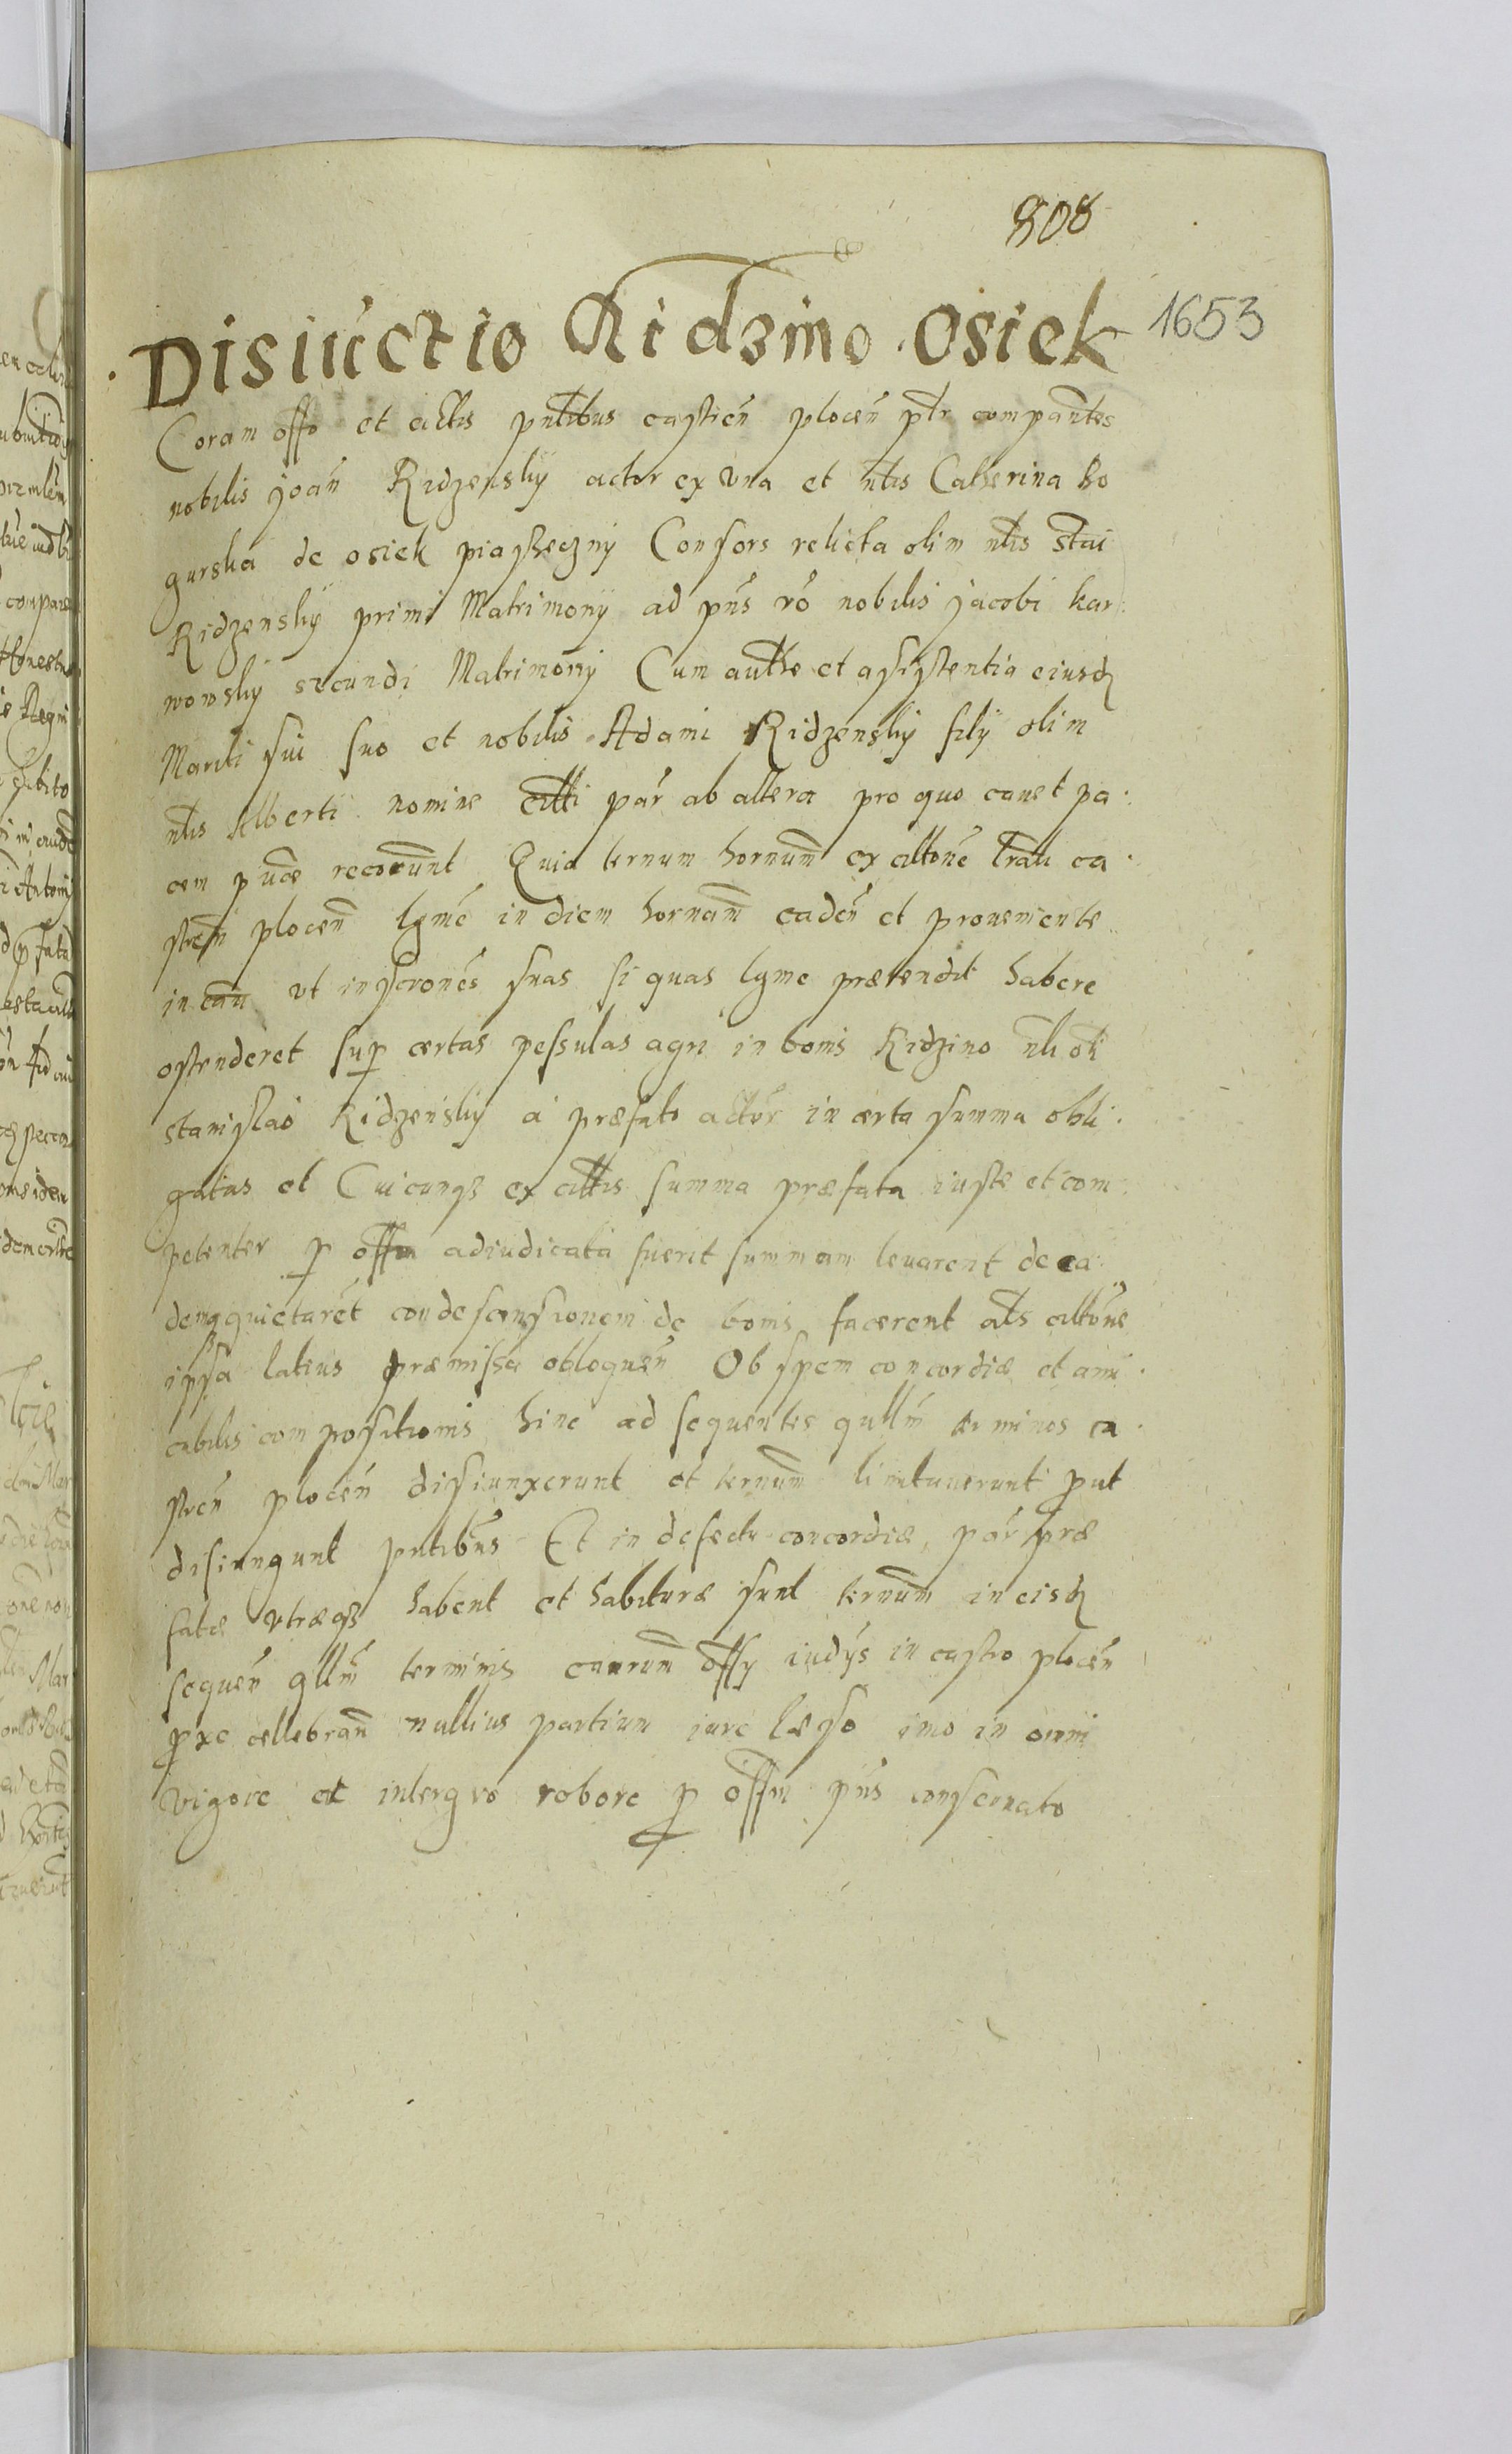 808
Disiuctio Ridzino Osiek 1653
Coram offo et actis pntibus castren plocen ptr comparntes
nobilis Joan Ridzenskÿ actor ex Vna et nlis Catherina Bo
gurska de osiek piaszeczny Consors relicta olim nlis Stai
Ridzenskÿ primi Matrimonÿ ad pns ro nobilis Jacobi kar
wowskÿ secundi Matrimonÿ Cum authe et assistentia eiusd
Mariti sui suo et nobilis Adami Ridzenskÿ filÿ olim
nlis Alberti nomine citti par ab altera pro quo cauet pa
cem puce recorunt Quia ternum hornum ex cittone lrali ca
stren plocen lgme in diem hornam caden et proueniente
in cau vt inscrones suas si quas lgme prætendit habere
ostenderet sup certas pessulas agri in bonis Ridzino nli oli
Stanislao Ridzenskÿ a præfato actor in certa summa obli
gatas et Cuicunqz ex cittis summa præfata iuste et com
petenter p offm adiudicata fuerit summam leuarent de ea
demqz quietaret condescensionem de bonis facerent als cittone
ipsa latius præmissa obloquen Ob spem concordiæ et ami
cabilis compositionis hinc ad sequentes qullm terminos ca
stren plocen disiunxerunt et ternum limitauerunt put
disiungunt pntibus Et in defectu concordiæ par præ
fatæ vtræqz habent et habituræ sunt ternum in eisd
sequen qllm terminis carum offy iudys in castro plocen
pxe cellebran nullius partium iure læso imo in omni
vigore et intergro robore p offm pns conseruato